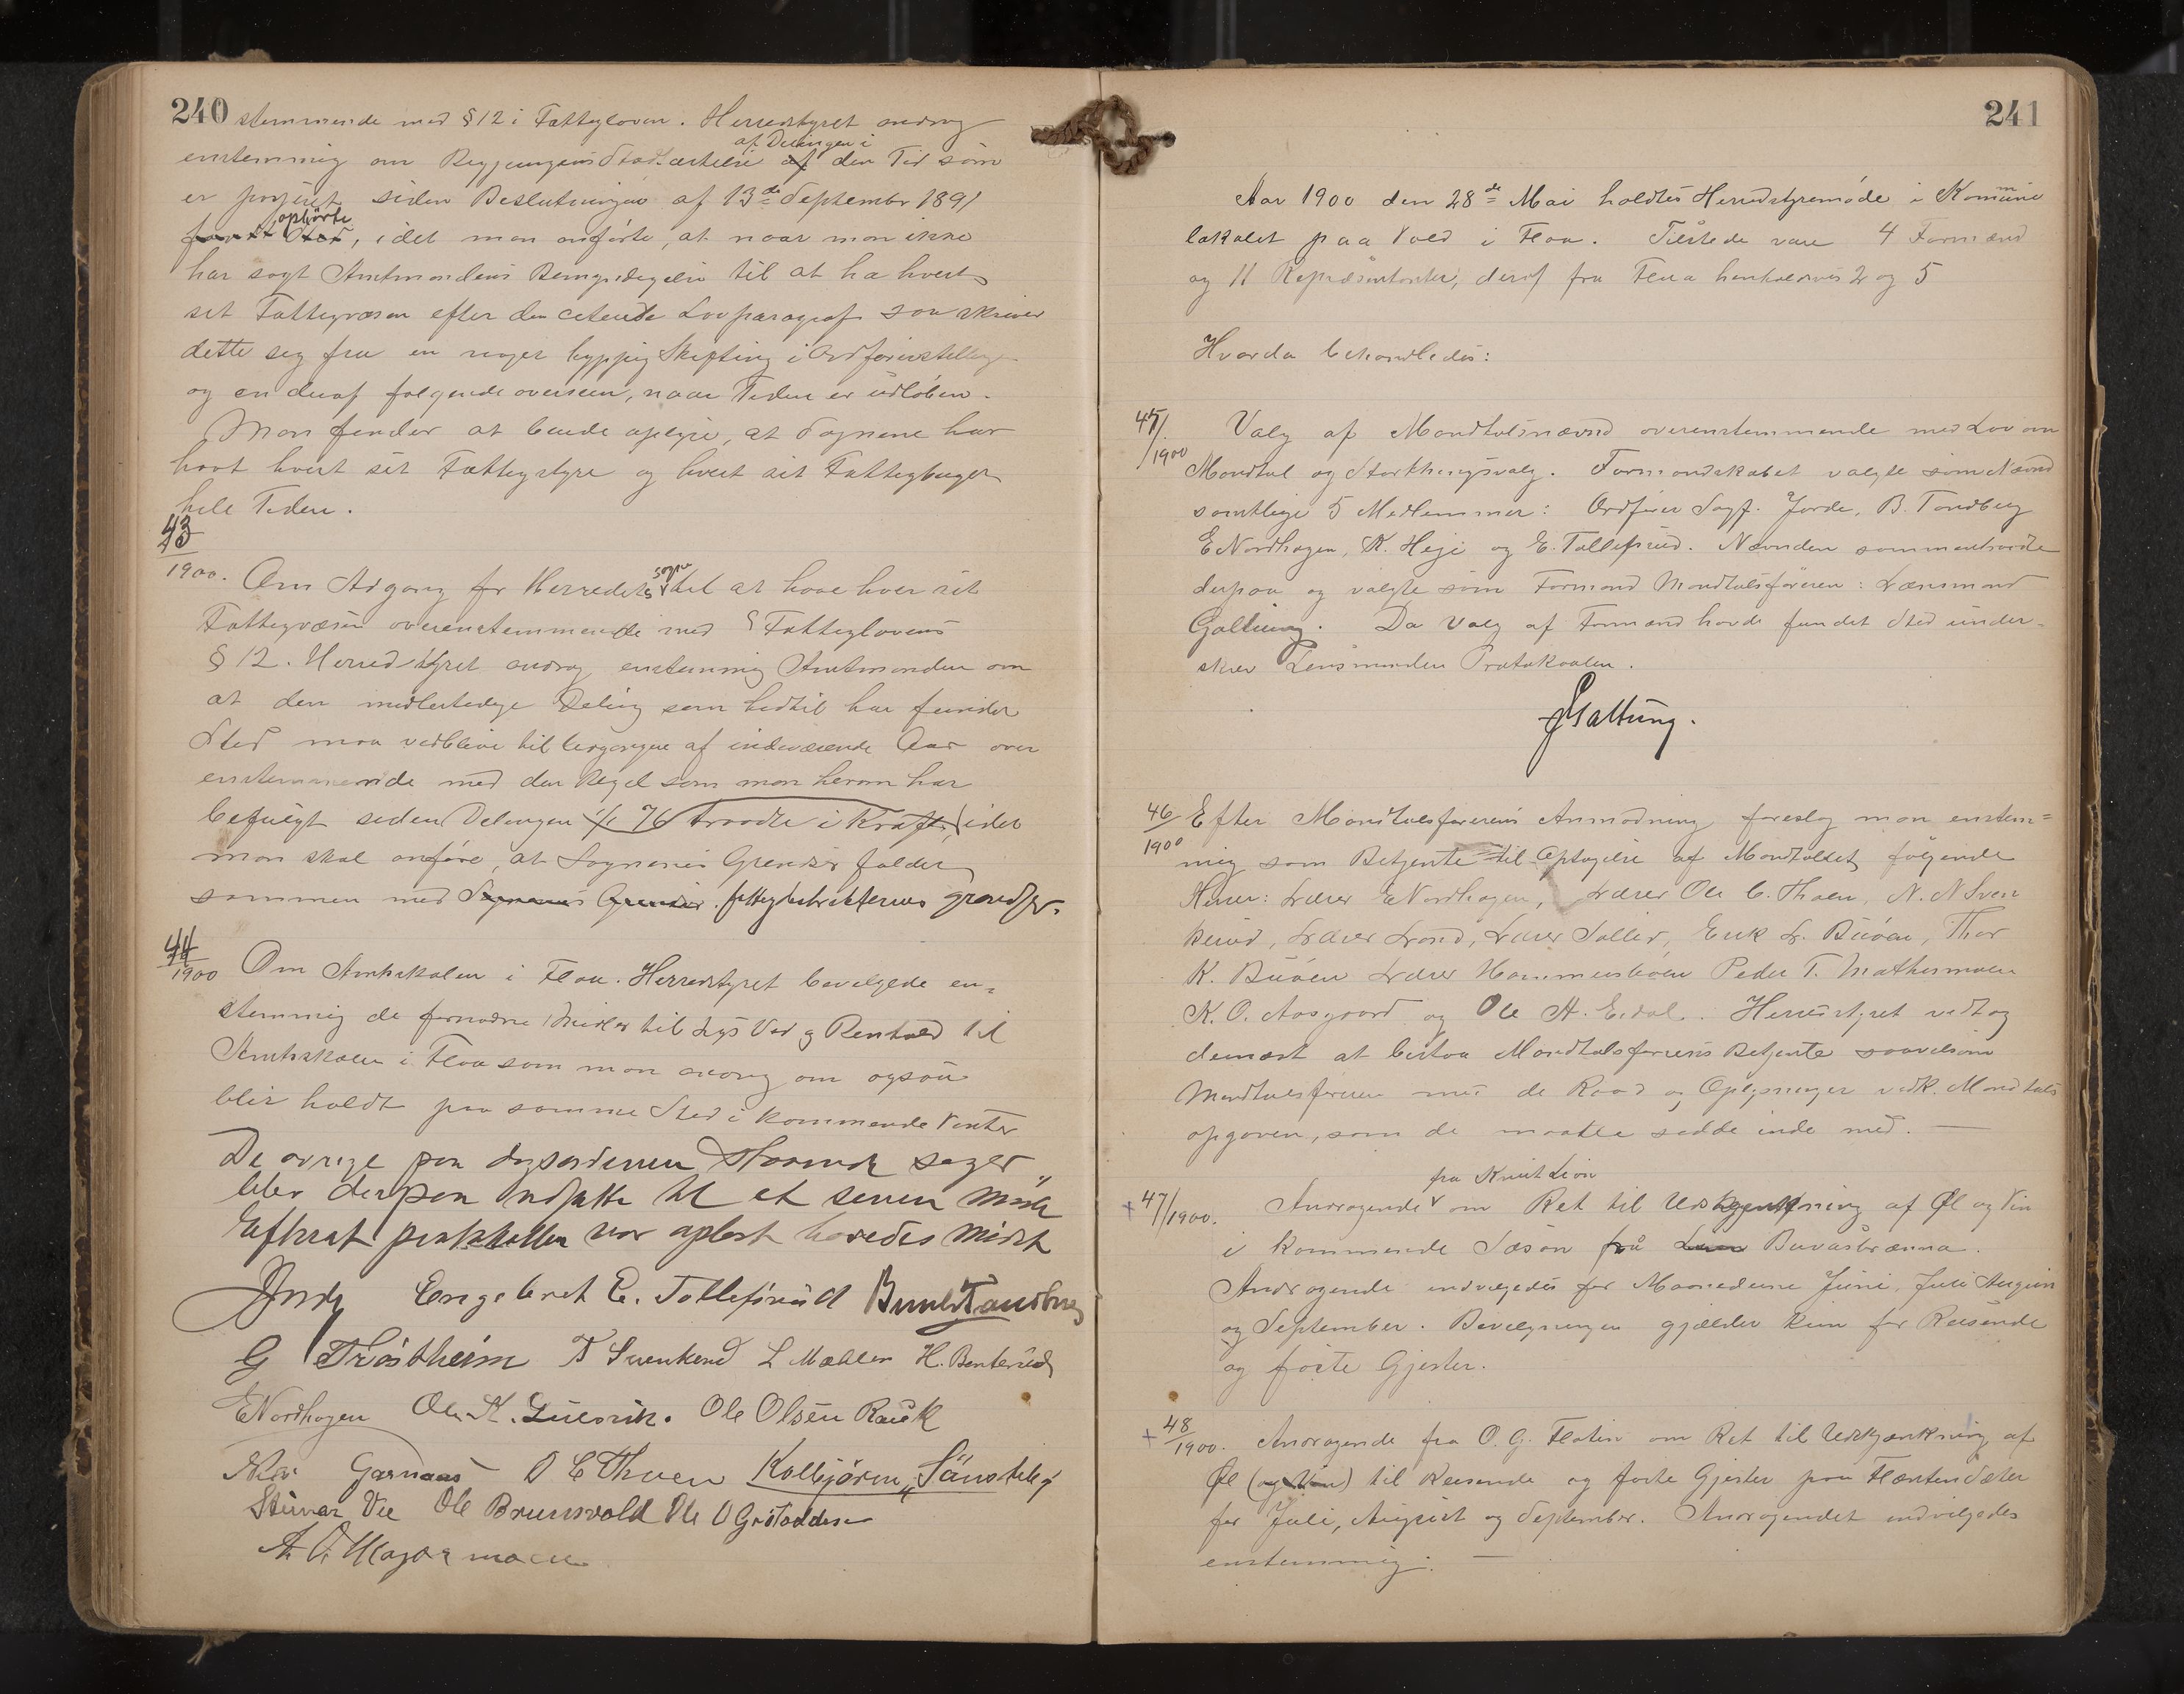 240
stemmende med § 12 i Fattigloven. Herredstyret androg
enstemmig om Regjeringens Stadfæstelse af Delingen i den Tid som
er forløbet siden Beslutningen af 13de September 1891
ophørte, idet man anførte, at naar man ikke
har søgt Amtmandens Bemyndigelse til at ha hvert
sit Fattigvæsen efter den citerede Lovparagraf saa skriver
dette sig fra en noget hyppig Skifting i Ordførerstillingen
og en deraf følgende overseem, naar Tiden er udløben.
Man finder at burde oplyse, at Sognene har
havt hvert sit Fattigstyre og hvert sit Fattigbudget
hele Tiden.
43
1900. Om Adgang for Herredets sogne til at have hver sit
Fattigvæsen overenstemmende med Fattiglovens
§ 12. Herredstyret androg enstemmig Amtmanden om
at den midlertidige Deling som hidtil har funder
Sted maa vedblive til Udgangen af indeværende Aar over
enstemmende med den Regel som man herom har
befulgt siden Delingen 1/1 76 traadte i Kraft, idet
man skal anføre, at Sognenes Grenser falder
sammen med Sognenes Grenser fattigdistrikternes grændser.
44
1900 Om Amtskolen i Flaa. Herredstyret bevilgede en=
stemmig de fornødne Midler til Lys Ved og Renhold til
Amtskolen i Flaa som man androg om ogsaa
blir holdt paa samme Sted i kommende Vinter
De øvrige paa dagsordenen staaende sager
blev derpaa udsatte til et senere møde
Efterat protokollen var oplæst hævedes mødet
Jorde Engebret E. Tollefsrud Bernt Tandberg
G Trøstheim T Svenkerud L Mæhlen H. Bentsrud
E Nordhagen Ole K. Gulsvik. Ole Olsen Rauk
Garnaas O E Thoen Kolbjørn Sänsteby
Steinar Vee Ole Brunsvold Ole O Grøtodden
A. O. Hagermoen
241
Aar 1900 den 28de Mai holdtes Herredstyremøde i Kommune
lokalet paa Vold i Flaa. Tilstede vare 4 Formænd
og 11 Repræsentanter, deraf fra Flaa henholdsvis 2 og 5
Hvorda behandledes:
45/1900 Valg af Mandtalsnævnd overenstemmende med Lov om
Mandtal og Storthingsvalg. Formandskabet valgte som Nævnd
samtlige 5 Medlemmer: Ordfører Sagf. Jorde, B. Tandberg
E Nordhagen, K. Heje og E. Tollefsrud. Nævnden sammentraadte
derpaa og valgte som Formand Mandtalsføreren: Lænsmand
Galtung. Da Valg af Formand havde fundet Sted under-
skrev Lensmanden Protokollen.
Galtung.
46/1900 Efter Mandtalsførerens Anmodning foreslog man enstem=
mig som Betjente til Optagelse af Mandtallet følgende
Herrer: Lærer E Nordhagen, Lærer Ole C. Thoen, N. N Sven
kerud, Lærer Lrand, Lærer Søllid, Erik L. Buøen, Thor
K. Buøen Lærer Hammersbøen Peder T. Mathismoen
K. O. Aasgaard og Ole A. Eidal. Herredstyret vedtog
dernæst at bistaa Mandtalsførerens Betjente saavelsom
Mandtalsføreren med de Raad og Oplysninger vedk. Mandtals
opgaven, som de maatte sidde inde med. —
47/1900. Andragende fra Knut Lien om Ret til Udskjænkning af Øl og Vin
i kommende Sæson fra Buvasbrænna.
Andragende indvilgedes for Maanederne Juni, Juli August
og September. Bevilgningen gjælder kun for Reisende
og faste Gjester.
48/1900. Andragende fra O. G. Flatin om Ret til Udskjænkning af
Øl (og Vin) til Reisende og faste Gjester paa Flænten Sæter
for Juli, August og September. Andragendet indvilgedes
enstemmig. —